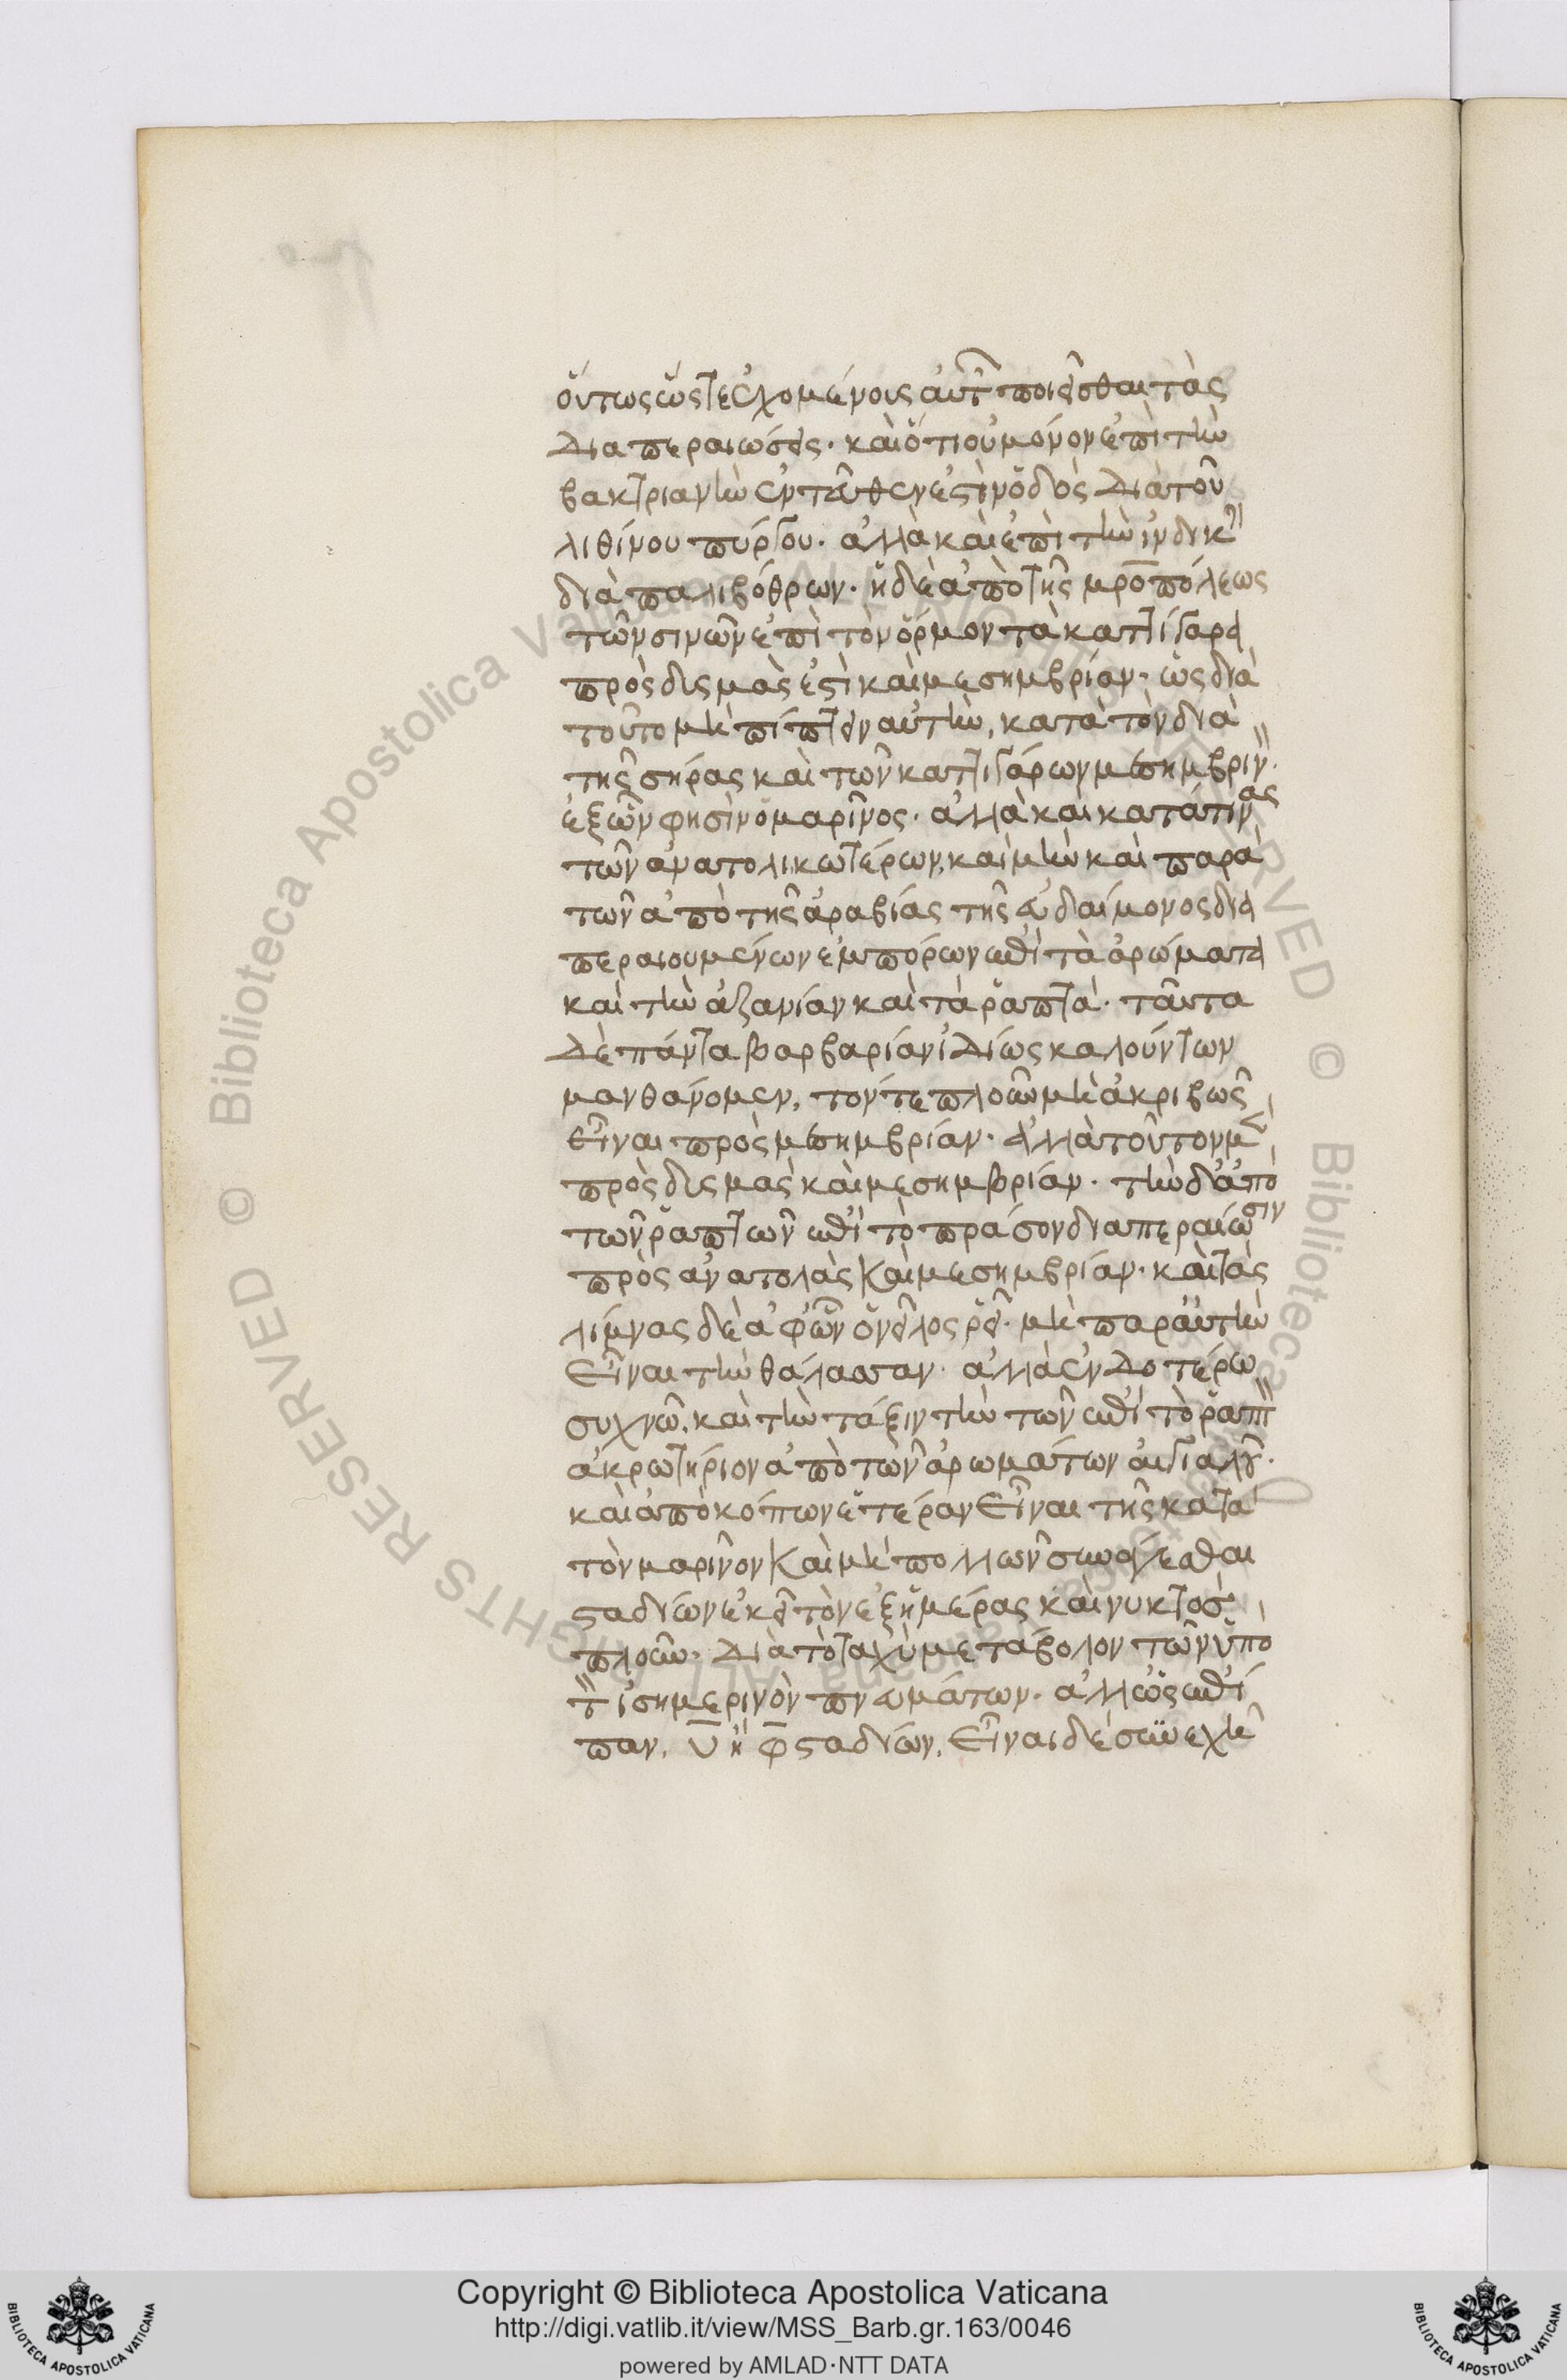 οὕτως ὥστε ἐχομένους αὐτ ποιεῖσθαι τὰς
διαπεραιώσεις. καὶ ὅτι οὐ μόνον ἐπὶ τὴν
βακτριανὴν ἐντεῦθεν ἐστὶν ὁδὸς διὰ τοῦ
λιθίνου πύργου. ἀλλὰ καὶ ἐπὶ τὴν ἰνδικ
διὰ παλιβόθρων. ἡ δὲ ἀπὸ τῆς μροπόλεως
τῶν σινῶν ἐπὶ τὸν ὅρμον τὰ καττίγαρα
πρὸς δυσμὰς ἐστὶ καὶ μεσημβρίαν. ὡς διὰ
τοῦτο μὴ πίπτειν αὐτὴν, κατὰ τὸν διὰ
τῆς σήρας καὶ τῶν καττιγάρων μεσημβριν.
ἐξ ὧν φησὶν ὁ μαρῖνος. ἀλλὰ κατά τινας
τῶν ἀνατολικωτέρων, καὶ μὴν καὶ παρὰ
τῶν ἀπὸ τῆς ἀραβίας τῆς εὐδαίμονος δια
περαιουμένων ἐμπόρων ἐπὶ τὰ ἀρώματα
καὶ τὴν ἀζανίαν καὶ τὰ ῥαπτά. ταῦτα
δὲ πάντα βαρβαρίαν ἰδίως καλούντων
μανθάνομεν, τόν τε πλοῦν μὴ ἀκριβῶς
εἶναι πρὸς μεσημβρίαν. ἀλλὰ τοῦτον μὲ
πρὸς δυσμὰς καὶ μεσημβρίαν. τὴν δ' ἀπὸ
τῶν ῥαπτῶν ἐπὶ τὸ πράσον διαπεραίωσιν
πρὸς ἀνατολὰς καὶ μεσημβρίαν. καὶ τὰς
λίμνας δὲ ἀφ' ὧν ὁ νεῖλος ῥεῖ. μὴ παρ' αὐτὴν
εἶναι τὴν θάλασσαν. ἀλλὰ ἐνδοτέρω
συχνῶ. καὶ τὴν τάξιν τὴν τῶν ἐπὶ τὸ ῥαπτ
ἀκρωτήριον ἀπὸ τῶν ἀρωμάτων αἰγιαλῶν.
καὶ ἀποκόπων ἑτέραν εἶναι τῆς κατὰ
τὸν μαρῖνον καὶ μὴ πολλῶν συνάγεσθαι
σταδίων ἐκεῖ τὸν ἐξ ἡμέρας καὶ νυκτὸς
πλοῦν. διὰ τὸ ταχὺ μετάβολον τῶν ὑπὸ
τ ἰσημερινὸν πνευμάτων. ἀλλ' ὡς ἐπὶ
παν, υ ἢ φ σταδίων, εἶναι δὲ συνεχῆ
Copyright © Biblioteca Apostolica Vaticana
http://digi.vatlib.it/view/MSS_Barb.gr.163/0046
powered by AMLAD·NTT DATA